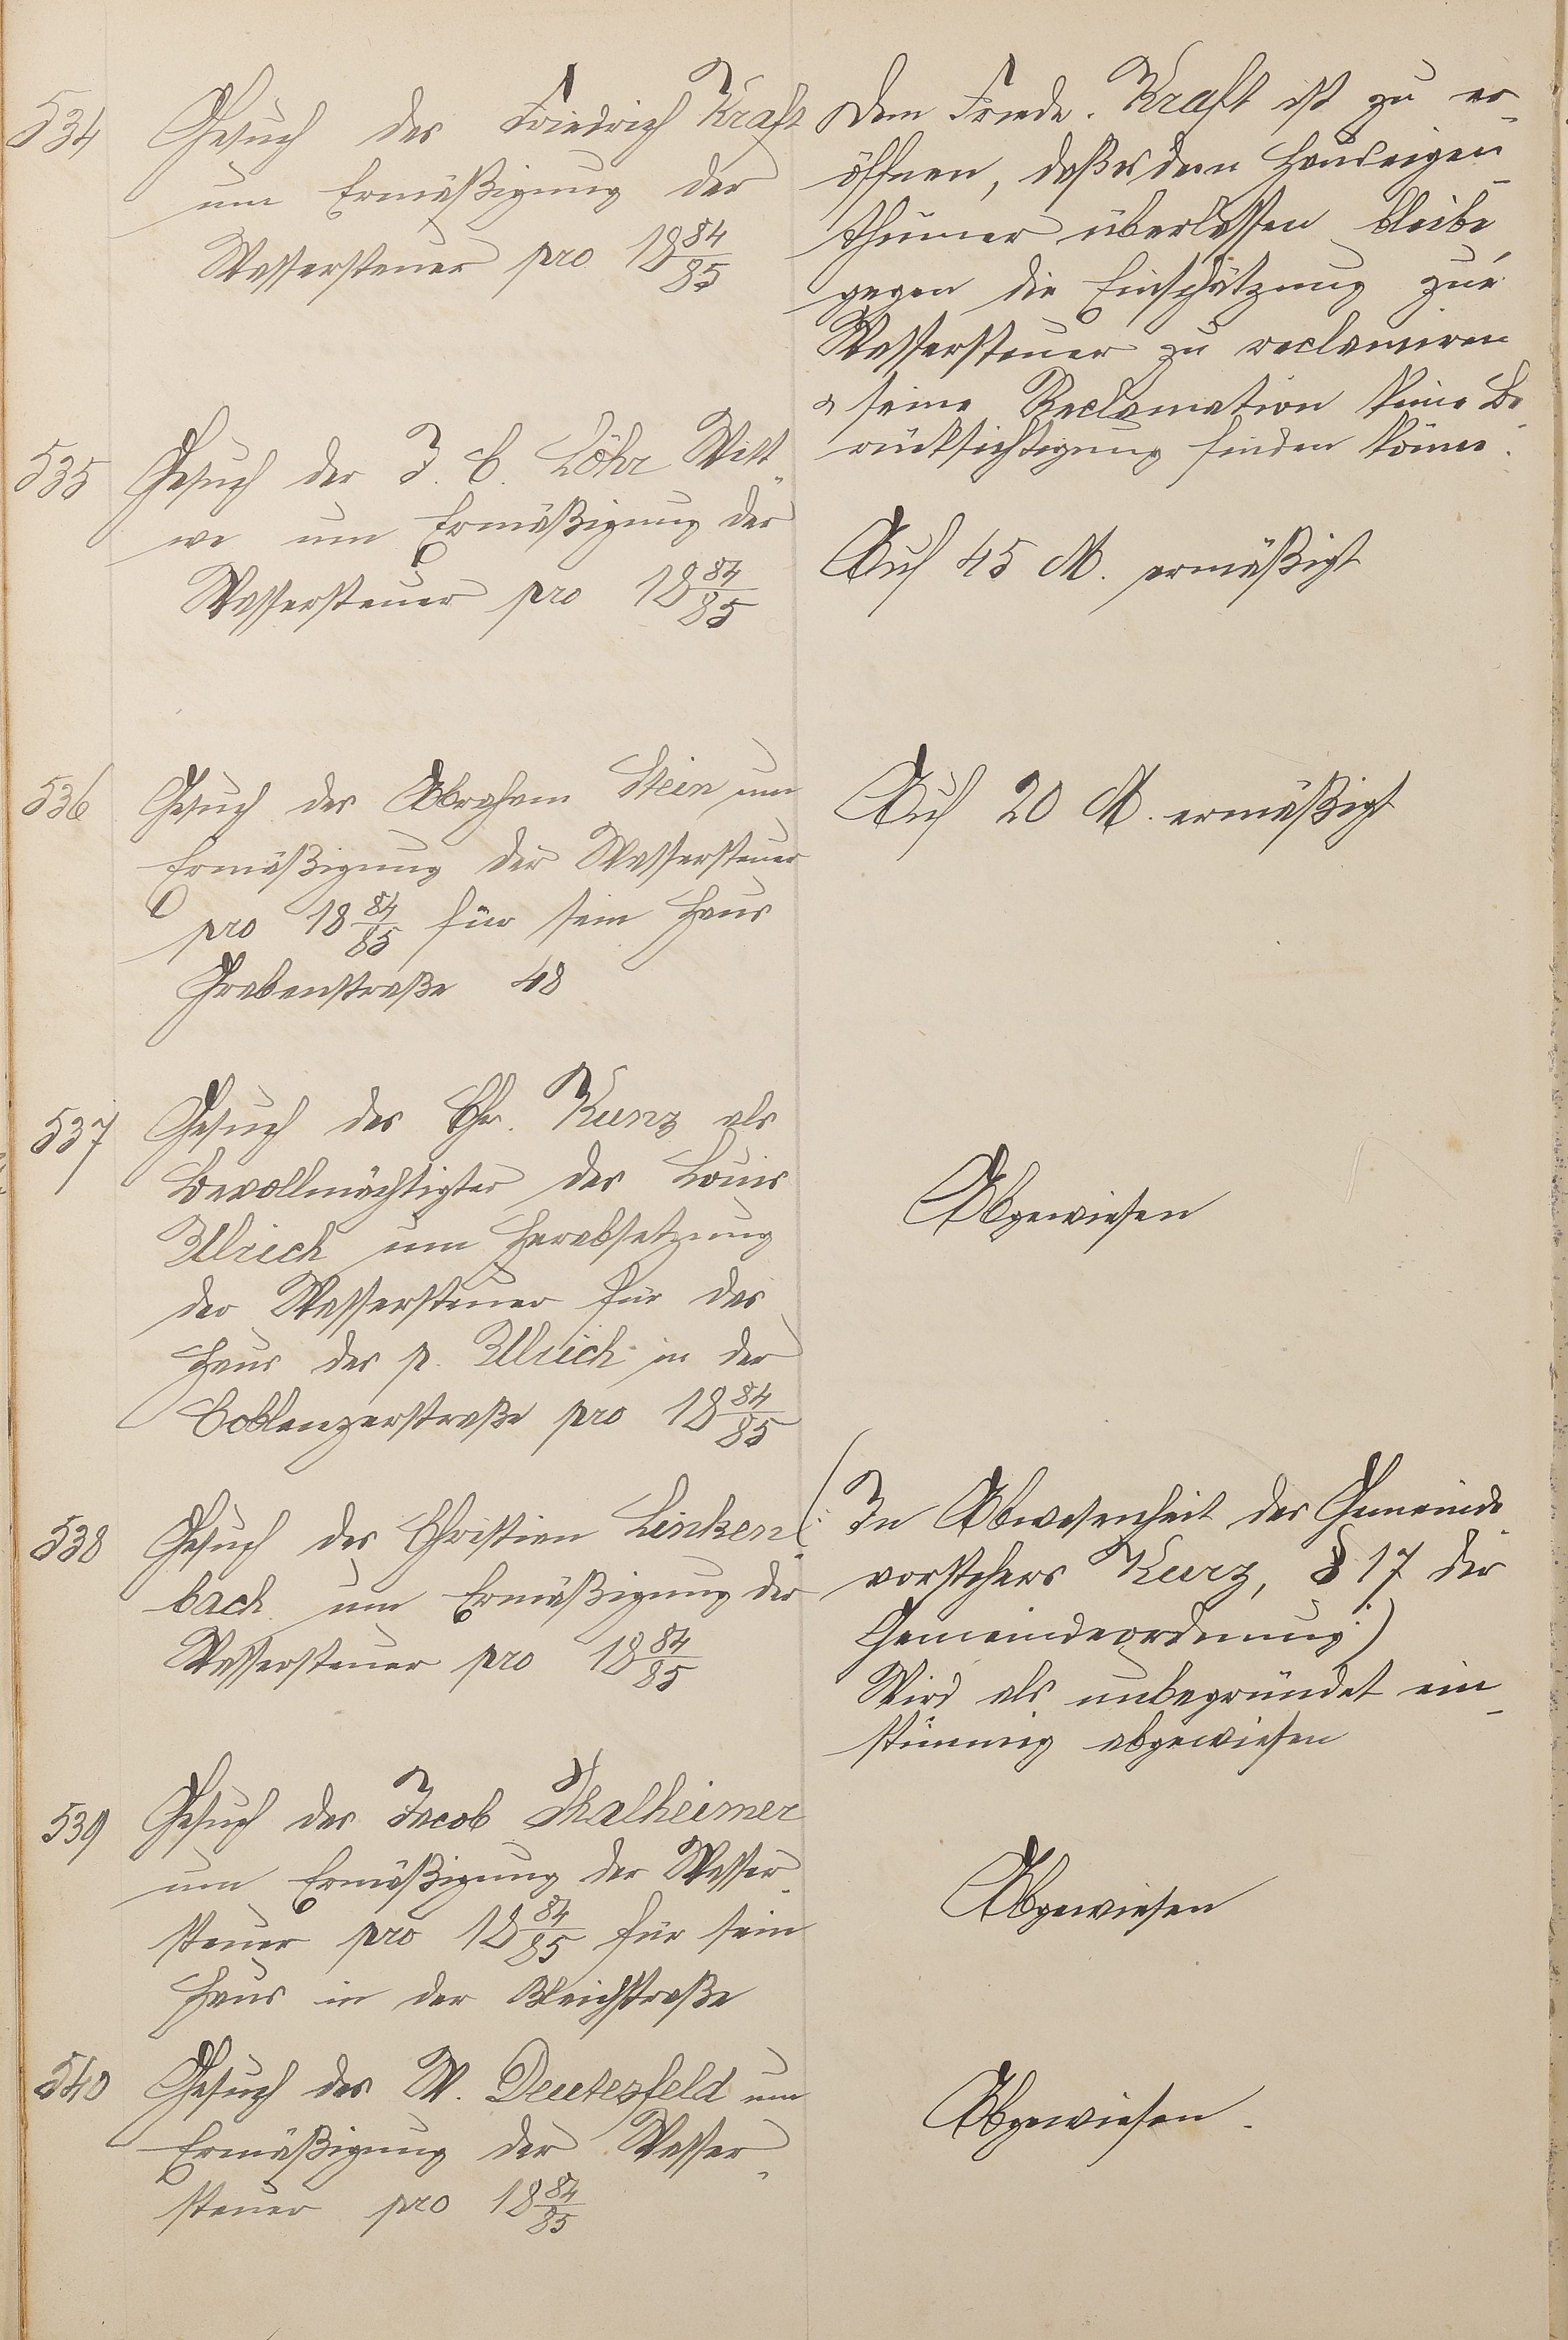 534
Gesuch des Friedrich Kraft
um Ermäßigung der
Wassersteuer pro 18 84/85
Dem Friedr. Kraft ist zu er-
öffnen, daß es dem Hauseigen-
thümer überlassen bleibe
gegen die Einschätzung zur
Wassersteuer zu reclamiren
& seine Reclamation keine Be-
rücksichtigung finden könne.
535
Gesuch der J. C. Löhr Witt-
we um Ermäßigung der
Wassersteuer pro 18 84/85
Auf 45 M. ermäßigt
536
Gesuch des Abraham Stein um
Ermäßigung der Wassersteuer
pro 18 84/85 für sein Haus
Grabenstraße 48
Auf 20 M. ermäßigt
537
Gesuch des Chr. Kunz als
Bevollmächtigter des Louis
Ulrich um Herabsetzung
der Wassersteuer für das
Haus des p. Ulrich in der
Coblenzerstraße pro 18 84/85
Abgewiesen
538
Gesuch des Christian Linken-
bach um Ermäßigung der
Wassersteuer pro 18 84/85
(: In Abwesenheit des Gemeinde
vorstehers Kurz, § 17 der
Gemeindeordnung :)
Wird als unbegründet ein-
stimmig abgewiesen
539
Gesuch des Jacob Thalheimer
um Ermäßigung der Wasser-
steuer pro 18 84/85 für sein
Haus in der Bleichstraße
Abgewiesen
540
Gesuch des W. Deutesfeld um
Ermäßigung der Wasser-
steuer pro 18 84/85
Abgewiesen.